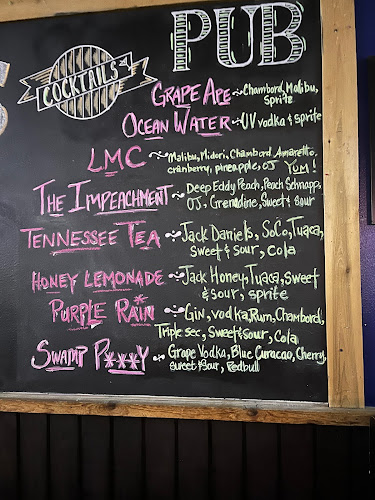 PUB
COCKTAILS
GRAPE APE Chambord, Malibu,
Sprite
OCEAN WATER UV vodka & sprite
LMC Malibu, Midori, Chambord, Amaretto,
cranberry, pineapple, OJ YUM!
THE IMPEACHMENT Deep Eddy Peach, Peach Schnapp,
OJ, Grenadine, Sweet & Sour
TENNESSEE TEA Jack Daniels, SoCo, Tuaca,
Sweet & Sour, Cola
HONEY LEMONADE Jack Honey, Tuaca, Sweet
& Sour, Sprite
PURPLE RAIN* Gin, vodka, Rum, Chambord,
Triple sec, Sweet & Sour, Cola
SWAMP P***Y Grape Vodka, Blue Curacao, Cherry,
Sweet & Sour, Redbull